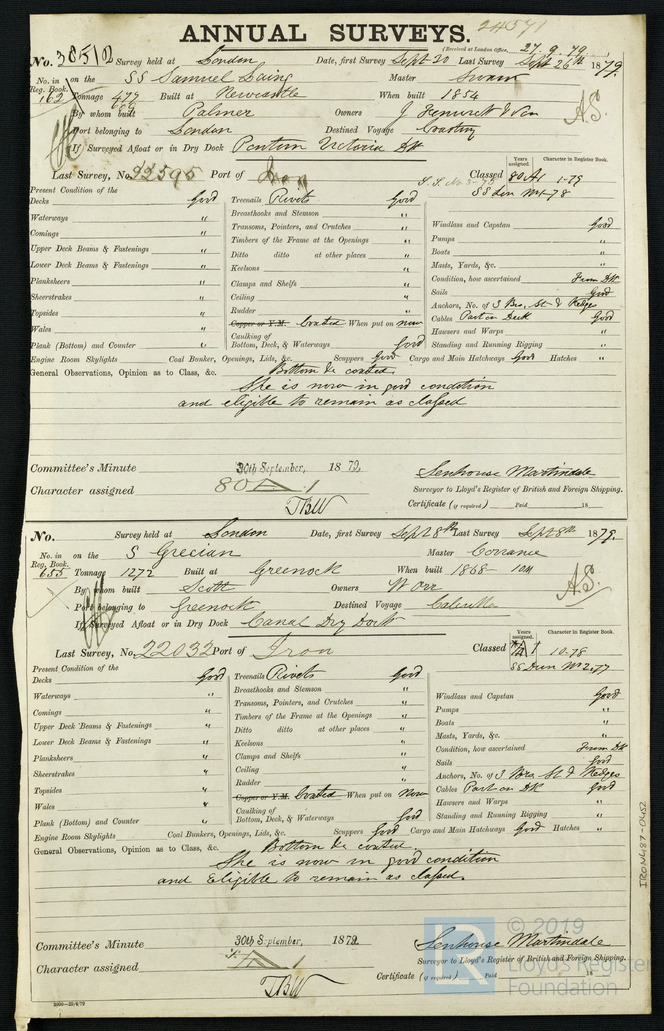 ANNUAL SURVEYS. 24571
(Received at London Office, 27.9.79
No. 38510 Survey held at London Date, first Survey Sept 20 Last Survey Sept 26th 1879.
No. in on the SS Samuel Laing Master Swann
Reg. Book.
162 Tonnage 477 Built at Newcastle When built 1854
By whom built Palmer Owners J Fenwick & Son
Port belonging to London Destined Voyage Coasting A.S.
If Surveyed Afloat or in Dry Dock Pontoon Victoria Dk
Last Survey, No. 22595 Port of Iron Classed Years assigned. 80A1 Character in Register Book. 1-79
SS Lon No1-78
Present Condition of the
Decks Good
Waterways "
Comings "
Upper Deck Beams & Fastenings "
Lower Deck Beams & Fastenings "
Planksheers "
Sheerstrakes "
Topsides "
Wales "
Plank (Bottom) and Counter "
Treenails Rivets Good
Breasthooks and Stemson "
Transoms, Pointers, and Crutches "
Timbers of the Frame at the Openings "
Ditto ditto at other places "
Keelsons "
Clamps and Shelfs "
Ceiling "
Rudder "
Copper or Y.M. Coated When put on now
Caulking of
Bottom, Deck, & Waterways Good
Windlass and Capstan Good
Pumps "
Boats "
Masts, Yards, &c. "
Condition, how ascertained From Dk
Sails Good
Anchors, No. of 3 Brs, St & Kedges
Cables Part on Deck Good
Hawsers and Warps "
Standing and Running Rigging "
Engine Room Skylights Coal Bunker, Openings, Lids, &c. Scuppers Good Cargo and Main Hatchways Good Hatches "
General Observations, Opinion as to Class, &c. Bottom &c coated.
She is now in good condition
and eligible to remain as classed
Committee's Minute 30th September, 1879.
Character assigned 80 A 1
TBW
Senhouse Martindale
Surveyor to Lloyd's Register of British and Foreign Shipping.
Certificate (if required) Paid 18
No. Survey held at London Date, first Survey Sept 8th Last Survey Sept 8th 1879.
No. in on the S Grecian Master Corrance
Reg. Book.
655 Tonnage 1272 Built at Greenock When built 1868 10M
By whom built Scott Owners W Orr A.S.
Port belonging to Greenock Destined Voyage Calcutta
If Surveyed Afloat or in Dry Dock Canal Dry Dock
Last Survey, No. 22032 Port of Iron Classed Years assigned. Character in Register Book. 10-78
Present Condition of the
Decks Good
Waterways "
Comings "
Upper Deck Beams & Fastenings "
Lower Deck Beams & Fastenings "
Planksheers "
Sheerstrakes "
Topsides "
Wales "
Plank (Bottom) and Counter "
Treenails Rivets Good
Breasthooks and Stemson "
Transoms, Pointers, and Crutches "
Timbers of the Frame at the Openings "
Ditto ditto at other places "
Keelsons "
Clamps and Shelfs "
Ceiling "
Rudder "
Copper or Y.M. Coated When put on Now
Caulking of
Bottom, Deck, & Waterways Good
Windlass and Capstan Good
Pumps "
Boats "
Masts, Yards, &c. "
Condition, how ascertained From Dk
Sails Good
Anchors, No. of 3 Brs St & Kedges
Cables Part on DK Good
Hawsers and Warps "
Standing and Running Rigging "
Engine Room Skylights Coal Bunkers, Openings, Lids, &c. Scuppers Good Cargo and Main Hatchways Good Hatches "
General Observations, Opinion as to Class, &c. Bottom &c coated.
She is now in good condition
and Eligible to remain as classed.
Committee's Minute 30th September, 1879.
Character assigned A 1
TBW
Senhouse Martindale
Surveyor to Lloyd's Register of British and Foreign Shipping.
Certificate (if required) Paid 18
2000—25/4/79
IRON487-0452
© 2019
Lloyd's Register
Foundation